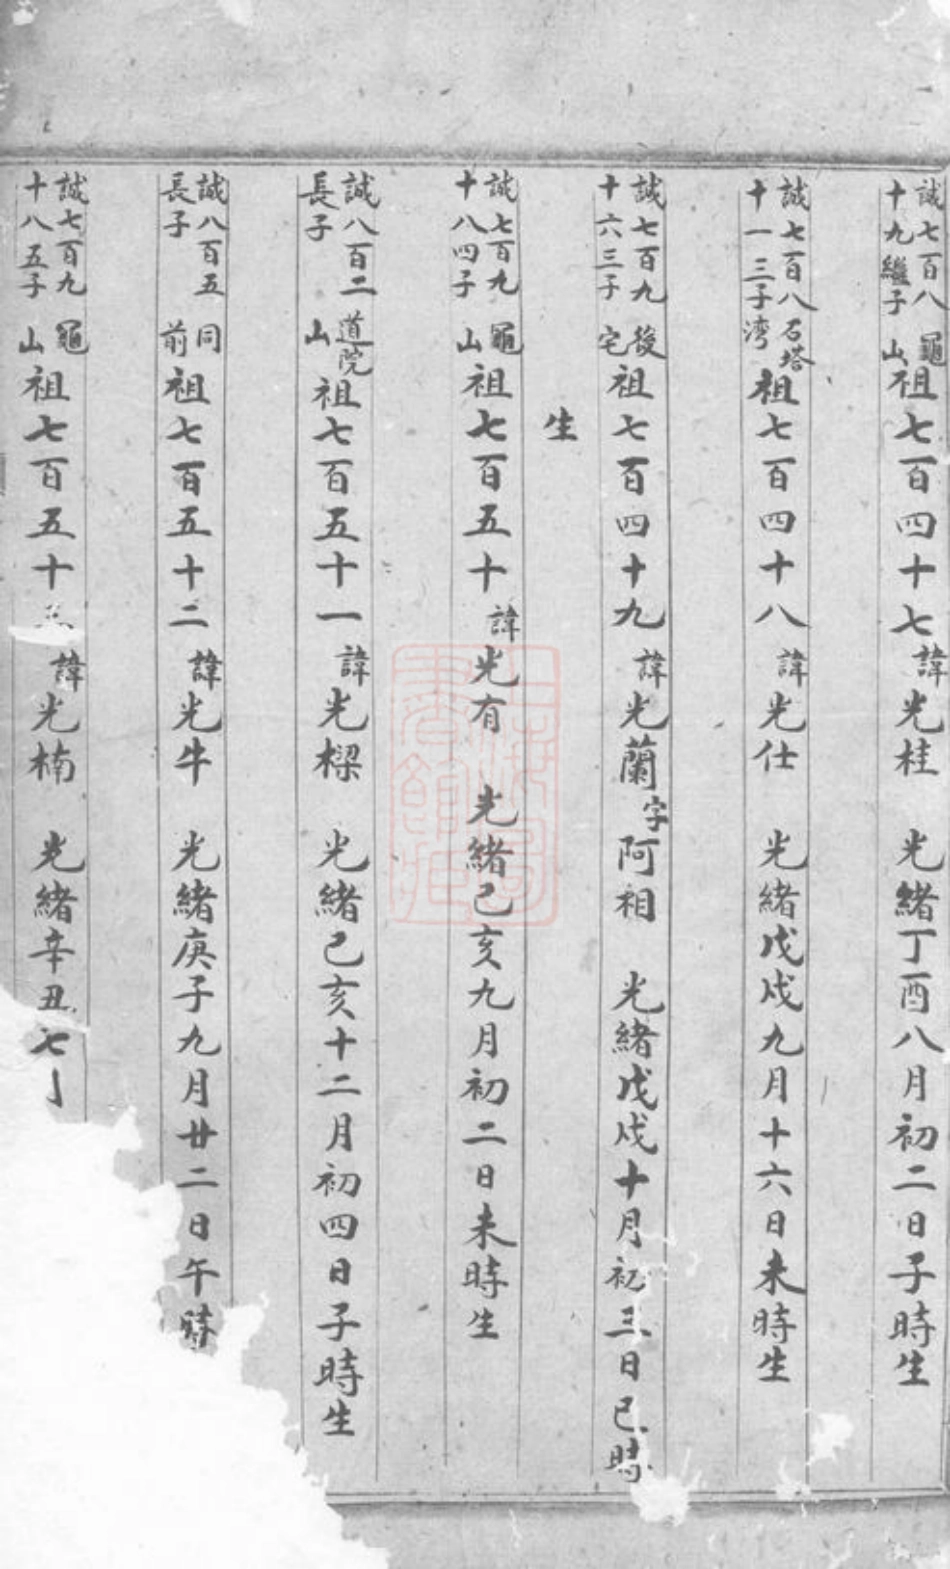 誠七百八十九繼子 龜山 祖七百四十七 諱光桂 光緒丁酉八月初二日子時生
誠七百八十一三子 石塔湾 祖七百四十八 諱光仕 光緒戊戌九月十六日未時生
誠七百九十六三子 後宅 祖七百四十九 諱光蘭 字阿相 光緒戊戌十月初三日巳時
生
誠七百九十八四子 龜山 祖七百五十 諱光有 光緒己亥九月初二日未時生
誠八百二長子 道院山 祖七百五十一 諱光樑 光緒己亥十二月初四日子時生
誠八百五長子 同前 祖七百五十二 諱光牛 光緒庚子九月廿二日午時
誠七百九十八五子 龜山 祖七百五十 諱光楠 光緒辛丑七